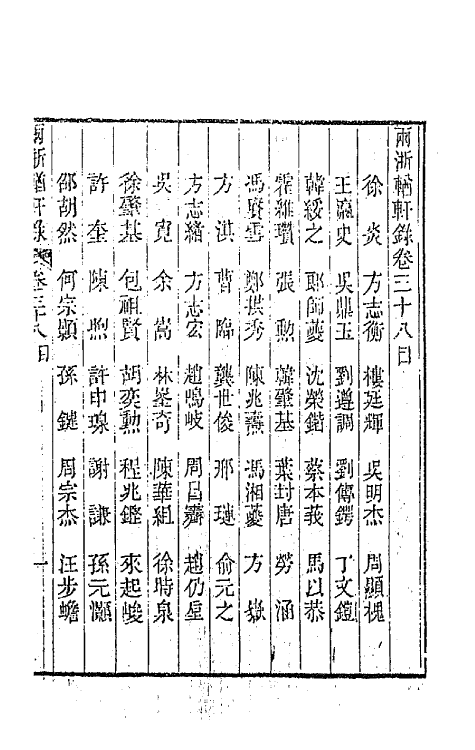 兩浙輶軒錄卷三十八目
徐炎　方志衡　樓廷輝　吳明杰　周顯槐
王瀛史　吳鼎玉　劉遵調　劉傳鍔　丁文鎧
韓綏之　耶師夔　沈榮鍇　蔡本莪　馬以恭
霍維瓚　張勲　韓肇基　葉封唐　勞涵
馮賢雲　鄭祺秀　陳兆燾　馮湘蘷　方嶽
方淇　曹臨　龔世俊　邢璉　俞元之
方志緒　方志宏　趙鳴岐　周昌霽　趙仍星
吳寛　余嵩　林峯奇　陳華組　徐時泉
徐肇基　包祖賢　胡奕勲　程兆鏗　來起峻
許奎　陳煦　許申琭　謝謙　孫元灝
邵胡然　何宗顥　孫鏈　周宗杰　汪步蟾
兩浙輶軒錄　卷三十八目　一